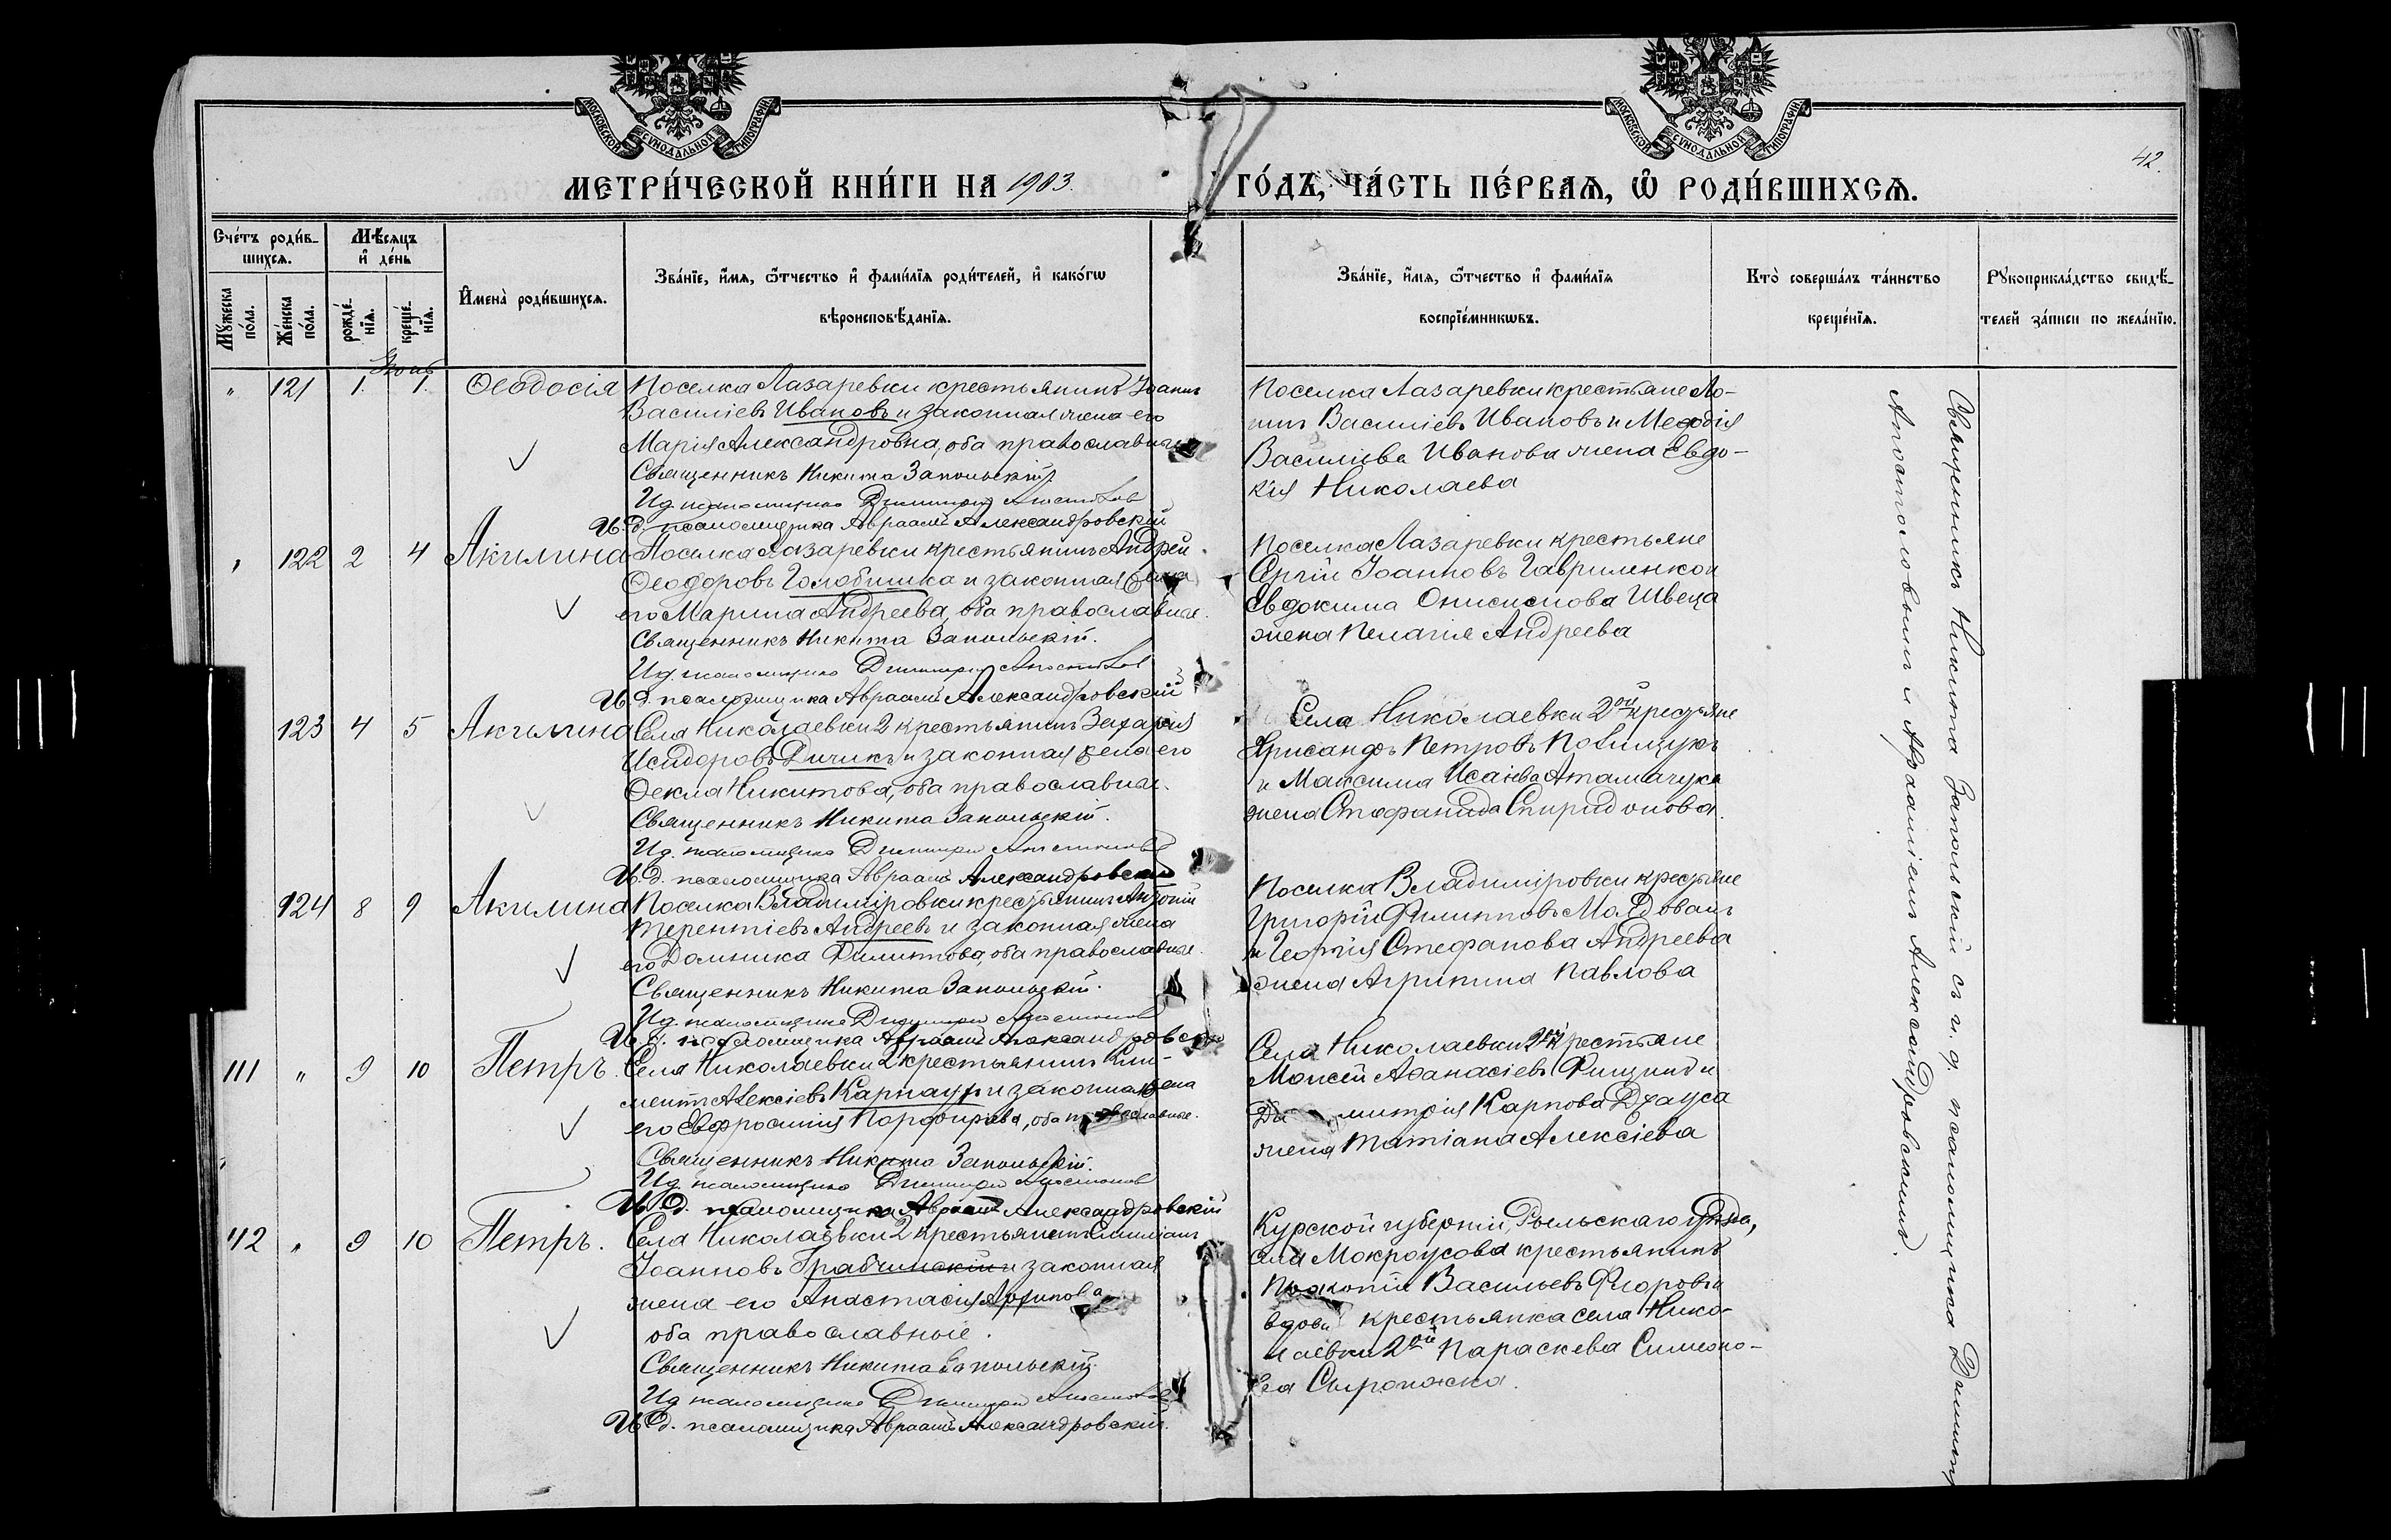 МОСКОВСКОЙ СѴНОДАЛЬНОЙ ТИПОГРАФІИ
МОСКОВСКОЙ СѴНОДАЛЬНОЙ ТИПОГРАФІИ
42.
МЕТРИ́ЧЕСКОЙ КНИ́ГИ НА 1903.
ГО́ДЪ, ЧА́СТЬ ПЕ́РВАѦ, Ѽ РОДИ́ВШИХСѦ.
Сче́тъ роди́в-
шихсѧ.
Мѣ́сѧцъ
и҆ де́нь
Мꙋ́жеска
по́ла.
Же́нска
по́ла.
рожде́-
нїѧ.
креще́-
нїѧ.
И҆мена̀ роди́вшихсѧ.
Зва́нїе, и҆́мѧ, ѻ҆́тчество и҆ фами́лїѧ роди́телей, и҆ како́гѡ
вѣроисповѣ́данїѧ.
Зва́нїе, и҆́мѧ, ѻ҆́тчество и҆ фами́лїѧ
воспрїе́мникѡвъ.
Кто̀ соверша́лъ та́инство
креще́нїѧ.
Рꙋкоприкла́дство свидѣ́-
телей за́писи по жела́нїю.
Іюнь
" 121 1. 1. Ѳеодосія Поселка Лазаревки крестьянинъ Іоаннъ
Василіевъ Ивановъ и законная жена его
Марія Александровна, оба православные
Священникъ Никита Запольскій
И.д. псаломщика Димитрій Апостоловъ
И. д. псаломщика Авраамъ Александровскій
Поселка Лазаревки крестьяне
Василіевъ Ивановъ и Меѳодія
Василіева Иванова жена Евдо-
кія Николаева
" 122 2 4 Акилина Поселка Лазаревки крестьянинъ Андрей
Ѳеодоровъ Голобишка и законная жена
его Марина Андреева, оба православные.
Священникъ Никита Запольскій.
И.д. псаломщика Димитрій Апостоловъ
И. д. псаломщика Авраамъ Александровскій
Поселка Лазаревки крестьяне
Сергій Іоанновъ Гавриленко и
Евдокима Онисимова Швеца
жена Пелагія Андреева
123 4 5 Акилина Села Николаевки 2 крестьянинъ Захарія
Исидоровъ Дичикъ и законная жена его
Ѳекла Никитова, оба православные.
Священникъ Никита Запольскій.
И.д. псаломщика Димитрій Апостоловъ
И. д. псаломщика Авраамъ Александровскій
Села Николаевки 2ой крестьяне
Хрисанѳъ Петровъ Полищукъ
и Максима Исаіева Атаманчука
жена Стефанида Спиридонова.
124 8 9 Акилина Поселка Владиміровки крестьянинъ Антоній
Терентіевъ Андреевъ и законная жена
его Домника Филиппова, оба православные.
Священникъ Никита Запольскій.
И.д. псаломщика Димитрій Апостоловъ
И. д. псаломщика Авраамъ Александровскій
Поселка Владиміровки крестьяне
Григорій Филипповъ Молдованъ
и Георгія Стефанова Андреева
жена Агрипина Павлова
111 " 9 10 Петръ. Села Николаевки 2 крестьянинъ Кли-
ментъ Алексіевъ Карнаухъ и законная жена
его Евфросинія Порфирьева, оба православные.
Священникъ Никита Запольскій.
И.д. псаломщика Димитрій Апостоловъ
И. д. псаломщика Авраамъ Александровскій
Села Николаевки 2ой крестьяне
Моисей Аѳанасіевъ и
Димитрія Карпова
жена Татіана Алексіева
112 " 9 10 Петръ. Села Николаевки 2 крестьянинъ Емиліанъ
Іоанновъ Грабчинскій и законная
жена его Анастасія Архипова
оба православные.
Священникъ Никита Запольскій.
И.д. псаломщика Димитрій Апостоловъ
И. д. псаломщика Авраамъ Александровскій.
Курской губерніи, Рыльскаго уѣзда,
села Мокроусова крестьянинъ
Прокопій Васильевъ Флоровъ и
вдова крестьянка села Нико-
лаевки 2ой Параскева Симеоно-
ва
Священникъ Никита Запольскій съ и. д. псаломщика Димитр.
Апостоловымъ и Авраміемъ Александровскимъ.